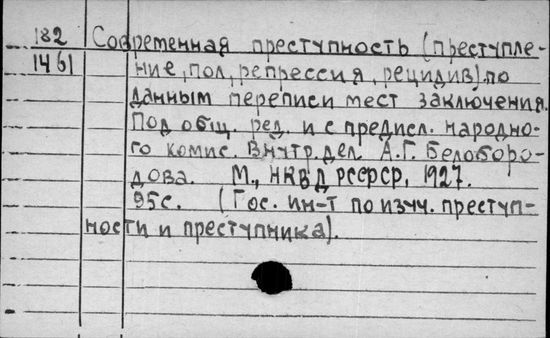 182 Современная преступность (преступле-
1461 ние, пол, репрессия, рецидив) по
данным переписи мест заключения.
Под общ. ред. и с предисл. народно-
го комис. Внутр. дел. А.Г. Белоборо-
дова. М., НКВД РСФСР, 1927.
95с. (Гос. ин-т по изуч. преступ-
ности и преступника).